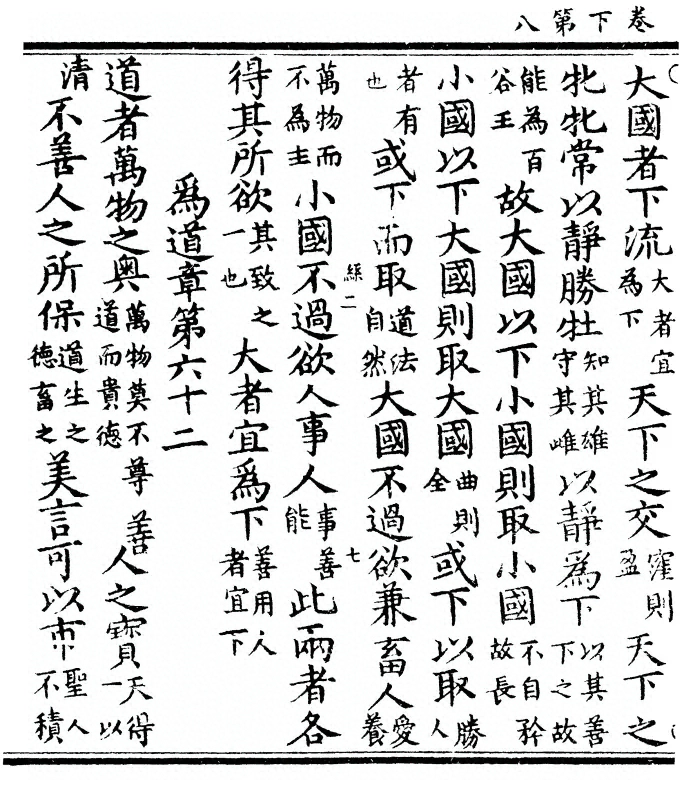 卷下第八
大國者下流大者宜為下天下之交窪則盈天下之
牝牝常以靜勝牡知其雄守其雌以靜爲下以其善下之故
能為百谷王故大國以下小國則取小國不自矜故長
小國以下大國則取大國曲則全或下以取勝人
者有也或下而取道法自然大國不過欲兼畜人愛養
緜二
七
萬物而不為主小國不過欲人事人事善能此兩者各
得其所欲其致之一也大者宜爲下善用人者宜下
爲道章第六十二
道者萬物之奧萬物莫不尊道而貴德善人之寶天得一以
清不善人之所保道生之德畜之美言可以市聖人不積